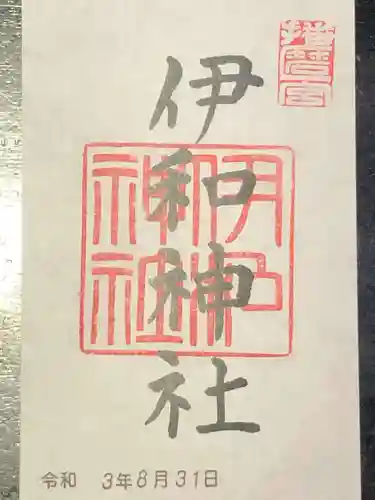 播磨一宮
伊和神社
伊和
神社
令和 3年8月31日